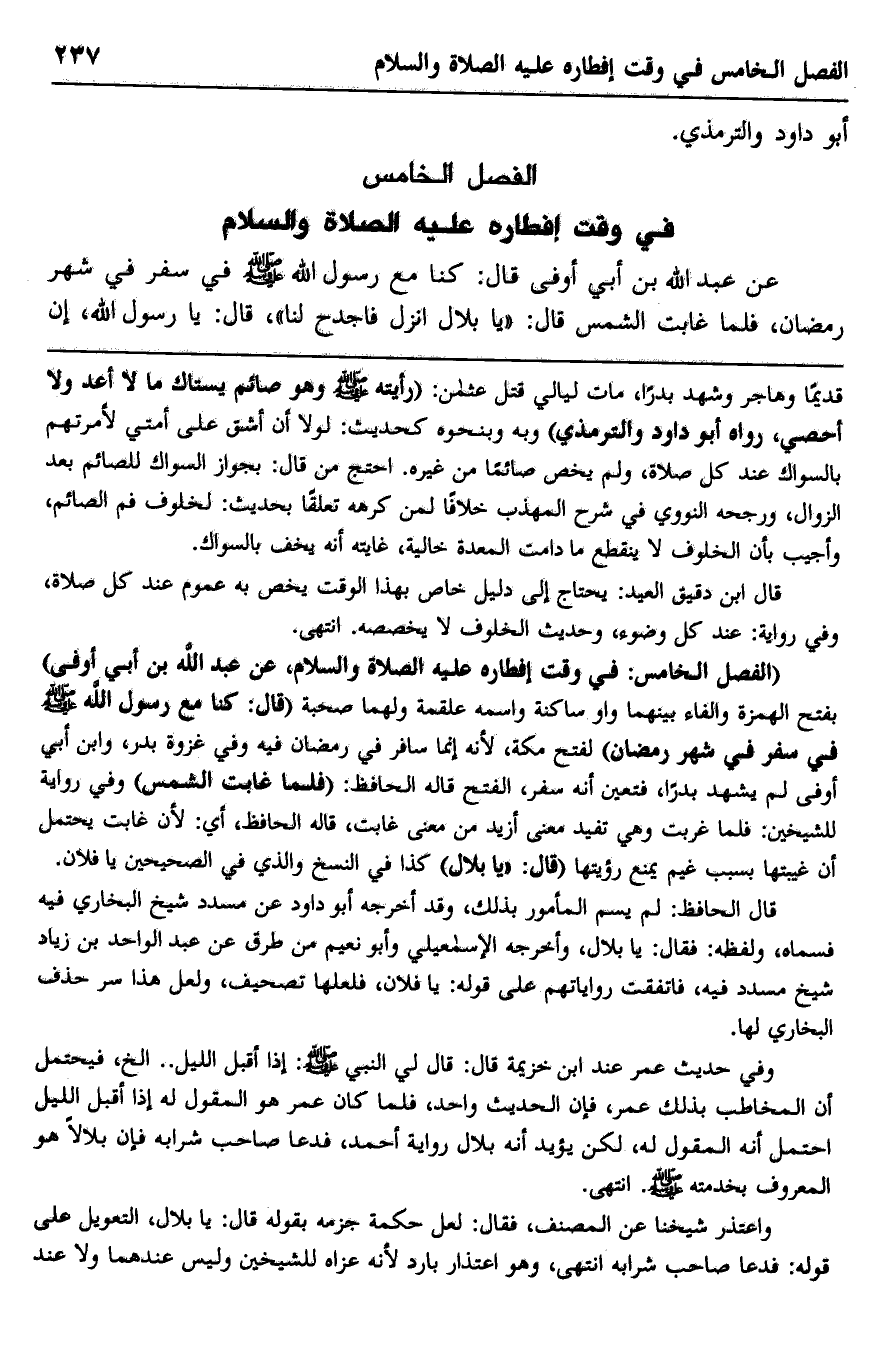 الفصل الخامس في وقت إفطاره عليه الصلاة والسلام ٢٣٧
أبو داود والترمذي.
الفصل الخامس
في وقت إفطاره عليه الصلاة والسلام
عن عبد الله بن أبي أوفى قال: كنا مع رسول الله ﷺ في سفر في شهر
رمضان، فلما غابت الشمس قال: «يا بلال انزل فاجدح لنا»، قال: يا رسول الله، إن
قديمًا وهاجر وشهد بدرًا، مات ليالي قتل عثمٰن: (رأيته ﷺ وهو صائم يستاك ما لا أعد ولا
أحصي، رواه أبو داود والترمذي) وبه وبنحوه كحديث: لولا أن أشق على أمتي لأمرتهم
بالسواك عند كل صلاة، ولم يخص صائمًا من غيره. احتج من قال: بجواز السواك للصائم بعد
الزوال، ورجحه النووي في شرح المهذب خلافًا لمن كرهه تعلقًا بحديث: لخلوف فم الصائم،
وأجيب بأن الخلوف لا ينقطع ما دامت المعدة خالية، غايته أنه يخف بالسواك.
قال ابن دقيق العيد: يحتاج إلى دليل خاص بهذا الوقت يخص به عموم عند كل صلاة،
وفي رواية: عند كل وضوء، وحديث الخلوف لا يخصصه. انتهى.
(الفصل الخامس: في وقت إفطاره عليه الصلاة والسلام، عن عبد اللَّه بن أبي أوفى)
بفتح الهمزة والفاء بينهما واو ساكنة واسمه علقمة ولهما صحبة (قال: كنا مع رسول اللَّه ﷺ
في سفر في شهر رمضان) لفتح مكة، لأنه إنما سافر في رمضان فيه وفي غزوة بدر، وابن أبي
أوفى لم يشهد بدرًا، فتعين أنه سفر، الفتح قاله الحافظ: (فلما غابت الشمس) وفي رواية
للشيخين: فلما غربت وهي تفيد معنى أزيد من معنى غابت، قاله الحافظ، أي: لأن غابت يحتمل
أن غيبتها بسبب غيم يمنع رؤيتها (قال: «يا بلال) كذا في النسخ والذي في الصحيحين يا فلان.
قال الحافظ: لم يسم المأمور بذلك، وقد أخرجه أبو داود عن مسدد شيخ البخاري فيه
فسماه، ولفظه: فقال: يا بلال، وأخرجه الإسمٰعيلي وأبو نعيم من طرق عن عبد الواحد بن زياد
شيخ مسدد فيه، فاتفقت رواياتهم على قوله: يا فلان، فلعلها تصحيف، ولعل هذا سر حذف
البخاري لها.
وفي حديث عمر عند ابن خزيمة قال: قال لي النبي ﷺ: إذا أقبل الليل.. الخ، فيحتمل
أن المخاطب بذلك عمر، فإن الحديث واحد، فلما كان عمر هو المقول له إذا أقبل الليل
احتمل أنه المقول له، لكن يؤيد أنه بلال رواية أحمد، فدعا صاحب شرابه فإن بلالاً هو
المعروف بخدمته ﷺ. انتهى.
واعتذر شيخنا عن المصنف، فقال: لعل حكمة جزمه بقوله قال: يا بلال، التعويل على
قوله: فدعا صاحب شرابه انتهى، وهو اعتذار بارد لأنه عزاه للشيخين وليس عندهما ولا عند